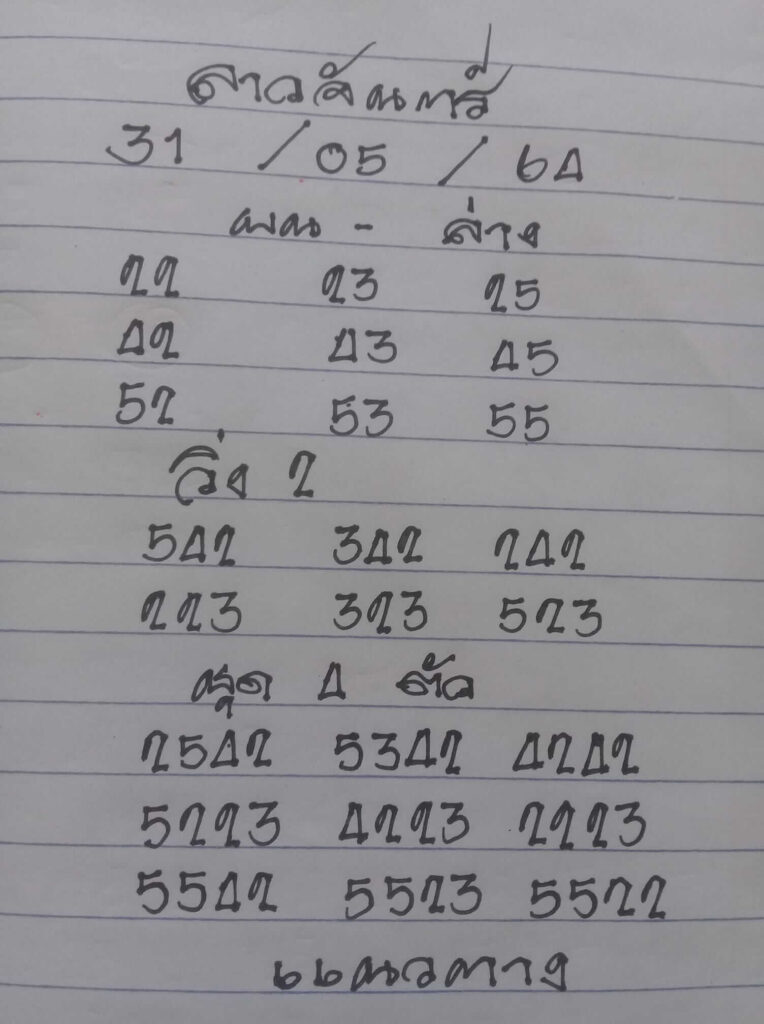 สาวจันทร์
31 / 05 / 64
บน - ล่าง
22 23 25
42 43 45
52 53 55
วิ่ง 2
542 342 242
223 323 523
ชุด 4 ตัว
2542 5342 4242
5223 4223 2223
5542 5523 5522
แนวทาง